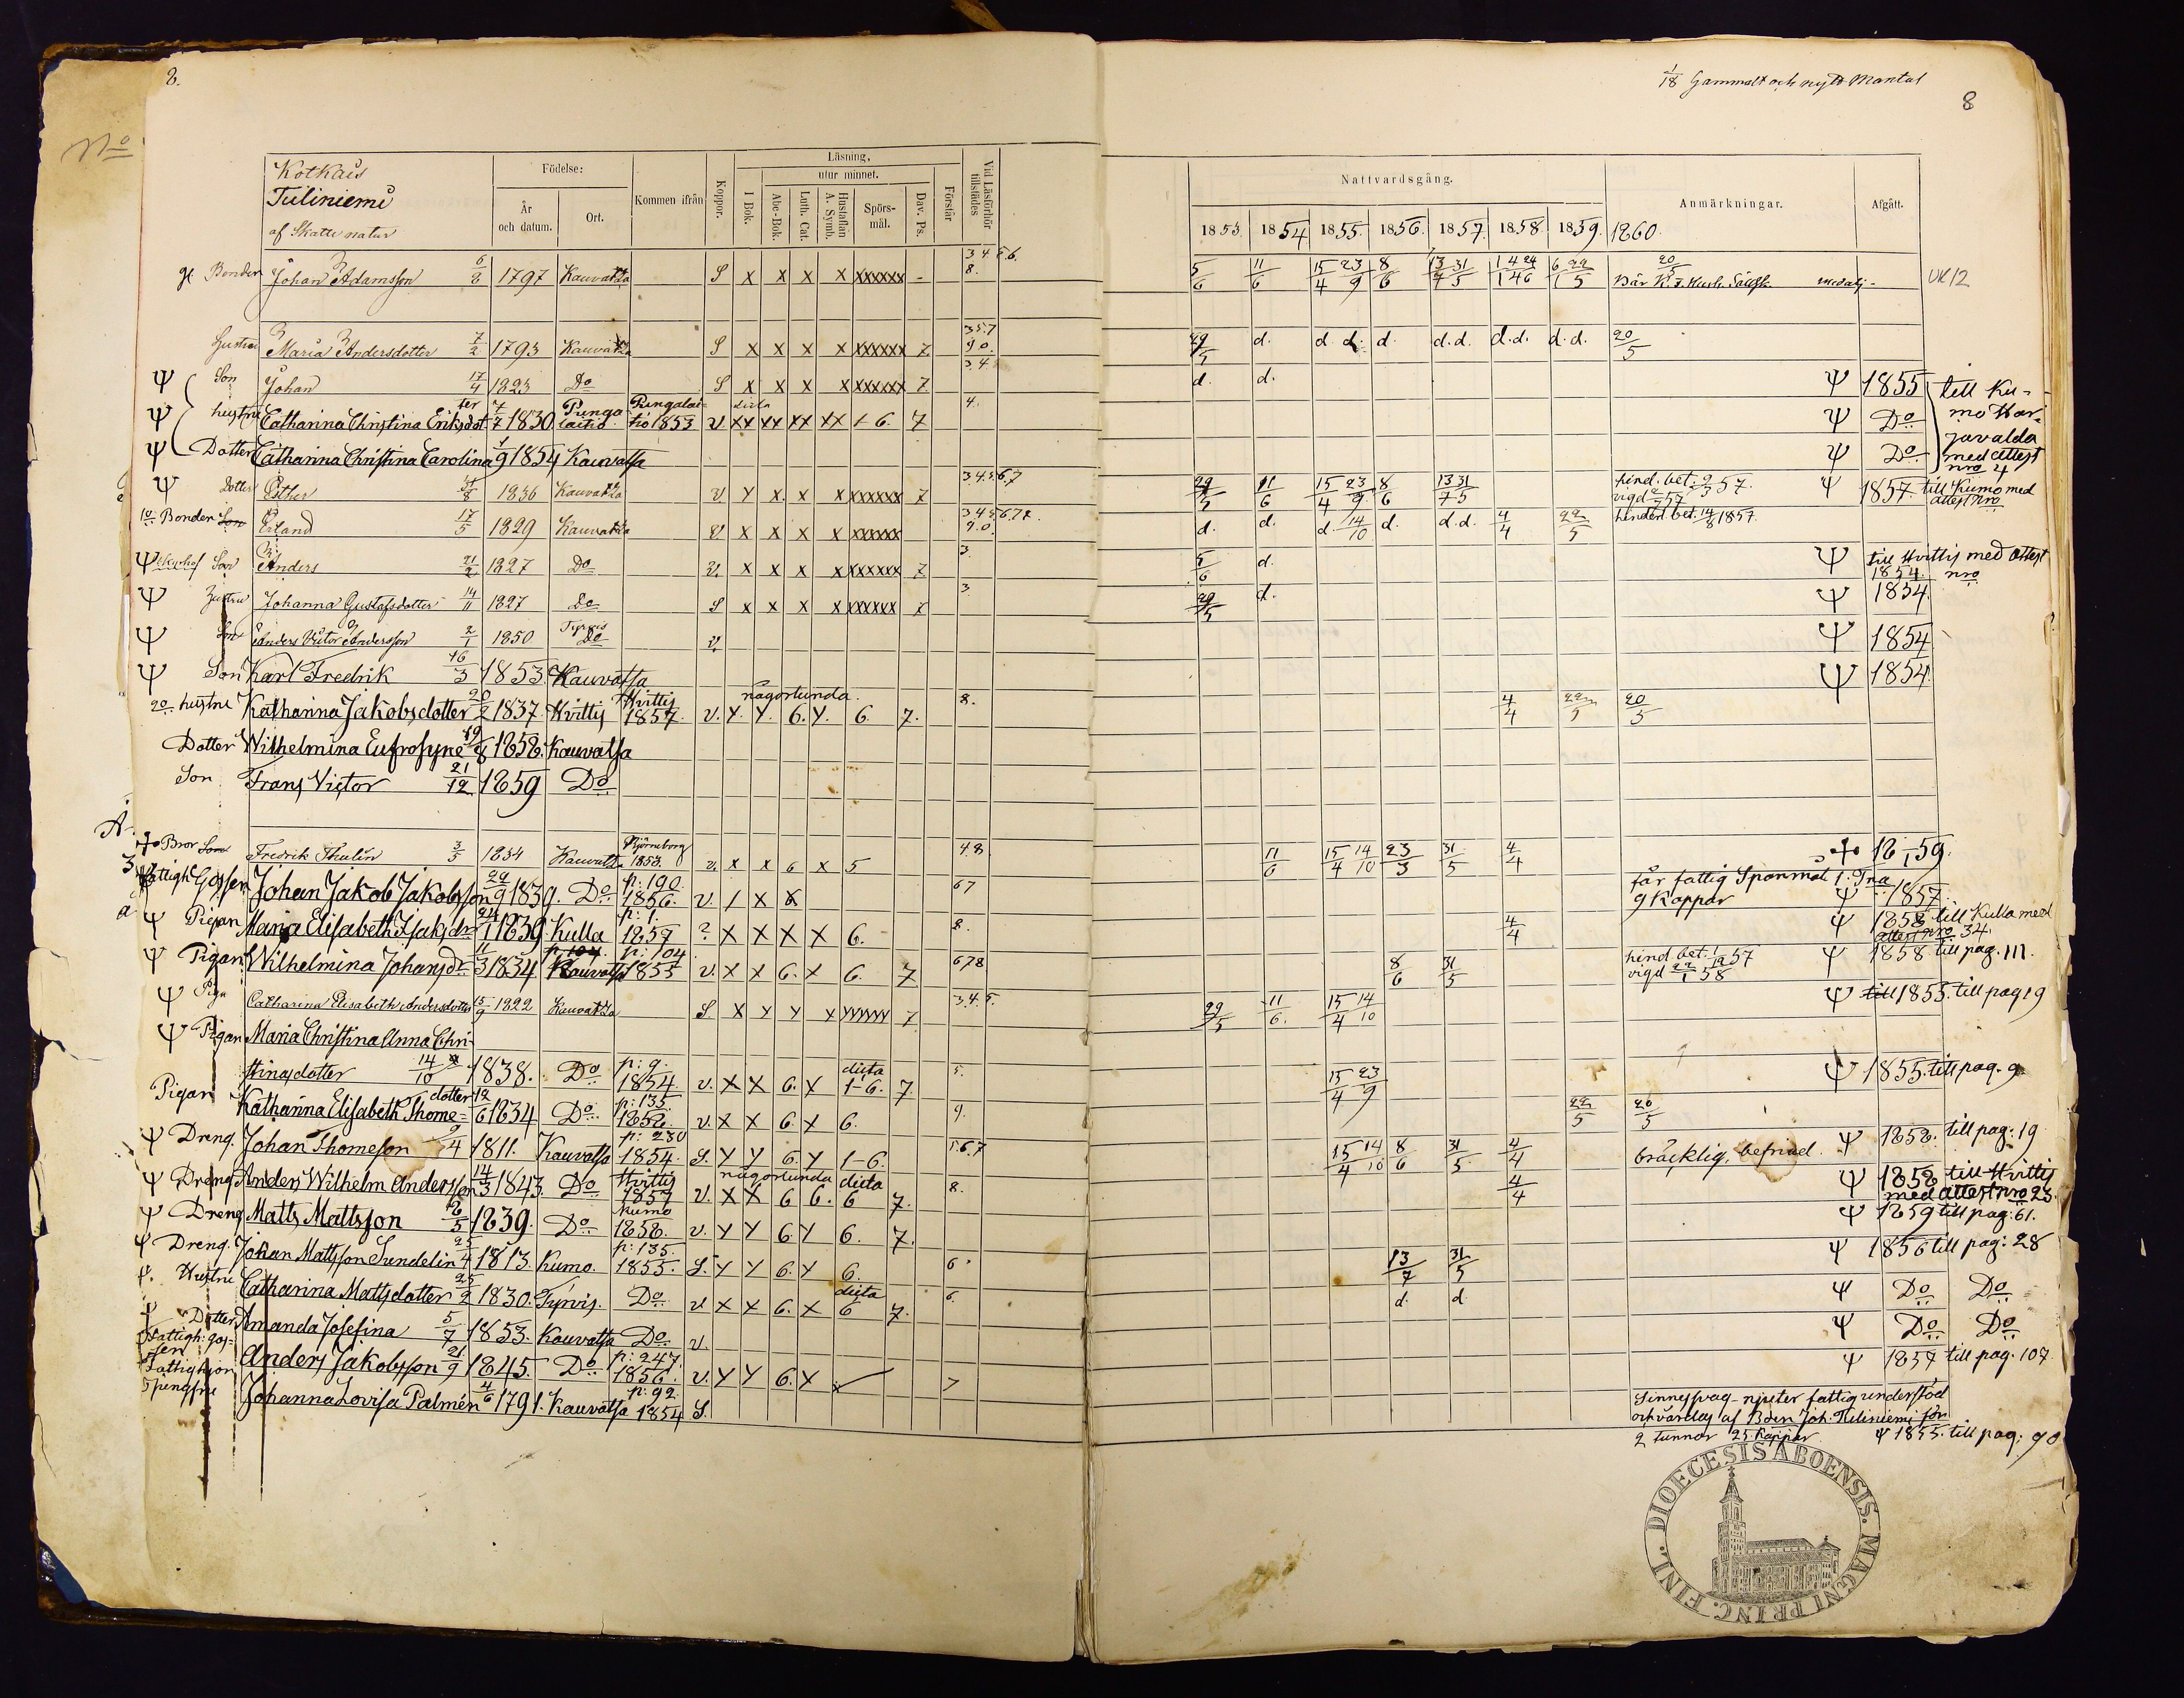 8.
1/18 Gammalt och nytt Mantal
8
No
Kotkais
Tiiliniemi
af Skatte natur
Födelse:
År och datum.
Ort.
Kommen ifrån
Koppor.
Läsning.
utur minnet.
I Bok.
Abc-Bok.
Luth. Cat.
Hustaflan A. Symb.
Spörsmål.
Dav. Ps.
Förstår
Vid Läsförhör tillstädes
Nattvardsgång.
Anmärkningar.
Afgått.
1853. 1854 1855. 1856. 1857. 1858. 1859. 1860.
gl. Bonden Johan Adamsson 6/2 1797 Kauvatza S x x x x xxxxxx - 3 4 5 6. 8. 5/6 11/6 15/4 23/9 8/6 medalj- UK12
Hustru Maria Andersdotter 7/2 1793 Kauvatza S x x x x xxxxxx 7 3 5 7 9 0. 29/5 d. d. d. d. d.d. d.d. d.d. 20/5
Ψ Son Johan 17/4 1823 Do S x x x x xxxxxx 7. 3 4. d. d. Ψ 1855 till Ku-
Ψ hustru Catharina Christina Eriksdotter 7/7 1830 Pungalaitio Pungalaitio 1853 v xx xx xx xx 1-6. 7 4. Ψ Do mo Harjavalda
Ψ Dotter Catharina Christina Carolina 1/9 1854 Kauvatsa Ψ Do med attest nro 4
Ψ Dotter Esther 31/8 1836 Kauvatza v. x x x x xxxxxx 7 3.4.5.6,7 29/5 11/6 15/4 23/9 8/6 13/7 31/5 hind. bet. Ψ 1857. till Kumo med attest nro
10 Bonden Son Erland 17/5 1829 Kauvatza v x x x x xxxxxx d. d. d 14/10 d. d.d. 4/4 22/5 hindersl. bet. 14/8 1857.
Ψ Son Anders 21/2 1827 Do v. x x x x xxxxxx 7 3. 5/6 d. Ψ till Hvittis med attest 1854. nro
Ψ Hustru Johanna Gustafsdotter 14/11 1827 Do S x x x x xxxxxx x 3. 29/5 d. Ψ 1854.
Ψ Son Anders Victor Andersson 2/1 1850 Tyrvis Do v. Ψ 1854
Ψ Son Karl Fredrik 16/3 1853. Kauvatsa Ψ 1854.
20 hustru Katharina Jakobsdotter 20/2 1837. Hvittis Hvittis 1857. v. y. y. 6. y. 6. 7. någorlunda. 8. 4/4 22/5 20/5
Dotter Wilhelmina Eufrosyne 19/8 1858. Kauvatsa
Son Frans Victor 21/12 1859 Do
Bror Son Fredrik Thulin 3/5 1834 Kauvatza Björneborg 1853. v. x x 6 x 5 4.8. 11/6 15/4 14/10 23/3 31/5 4/4 1859.
Fattigh Gossen Johan Jakob Jakobsson 29/9 1839. Do p: 190. 1856. v. 1 x x 67 får fattig Spanmål 1: Tna 9 Kappar Ψ 1857.
Ψ Pigan Maria Elisabeth Isaksdr 24/1 1839 Kulla p: 1. 1857 ? x x x x 6. 8. 4/4 Ψ 1858 till Kulla med attest nro 34.
Ψ Pigan Wilhelmina Johansdr 11/3 1834 Kauvatsa p: 104 1855 v. x x 6. x 6. 7 678 8/6 31/5 hind. bet. 1/12 57 vigd 22/1 58 Ψ 1858. till pag. 111.
Ψ Piga Catharina Elisabeth Andersdotter 15/9 1822 Kauvatza S. x y y x yyyyyy 7. 3.4.5. 29/5 11/6. 15/4 14/10 Ψ till 1855. till pag 19
Ψ Pigan Maria Christina Anna Christinasdotter 14/10 1838. Do p: 9. 1854 v. x x 6. x dicta 1-6. 7. 5. 15/4 23/9 Ψ 1855. till pag. 9
Pigan Katharina Elisabeth Thomedotter 12/6 1834 Do p: 135. 1858. v. x x 6. x 6. 9. 22/5 20/5
Ψ Dreng. Johan Thomeson 9/4 1811. Kauvatsa p: 230 1854. S. y y 6. y 1-6. 5.6.7 15/4 14/10 8/6 31/5 4/4 bräcklig, befriad. Ψ 1858. till pag: 19
Ψ Dreng Anders Wilhelm Andersson 14/3 1843. Do Hvittis 1857 v. x x 6 6. 6 7. någorlunda dicta 8. 4/4 Ψ 1858 till Hvittis med attest nro 23.
Ψ Dreng Matts Mattsson 18/5 1839. Do Kumo 1858. v. y y 6 y 6. 7. Ψ 1859 till pag: 61.
Ψ Dreng. Johan Mattsson Sundelin 25/4 1813. Kumo. p: 135. 1855. S. y y 6. y 6. 6. 13/7 31/5 Ψ 1856 till pag: 28
Ψ. Hustru Catharina Mattsdotter 25/2 1830. Tyrvis. Do v. x x 6. x dicta 6 7. 6. d. d. Ψ Do Do
Ψ Dotter Amanda Josefina 5/7 1853. Kauvatsa Do v. Ψ Do Do
Fattigh: gossen Anders Jakobsson 21/9 1845. Do p: 247. 1856. v. y y 6. x 7 Ψ 1857 till pag. 107
Fattighjon Johanna Lovisa Palmén 4/6 1791. Kauvatsa p: 92. 1854 S. Sinnessvag - njuter fattig understöd
och vårdas af Bden Joh. Tiiliniemi för
2 tunnor 25 Kappar Ψ 1855. till pag: 90
DIOECESIS ABOENSIS. MAGNI PRINC. FINL.